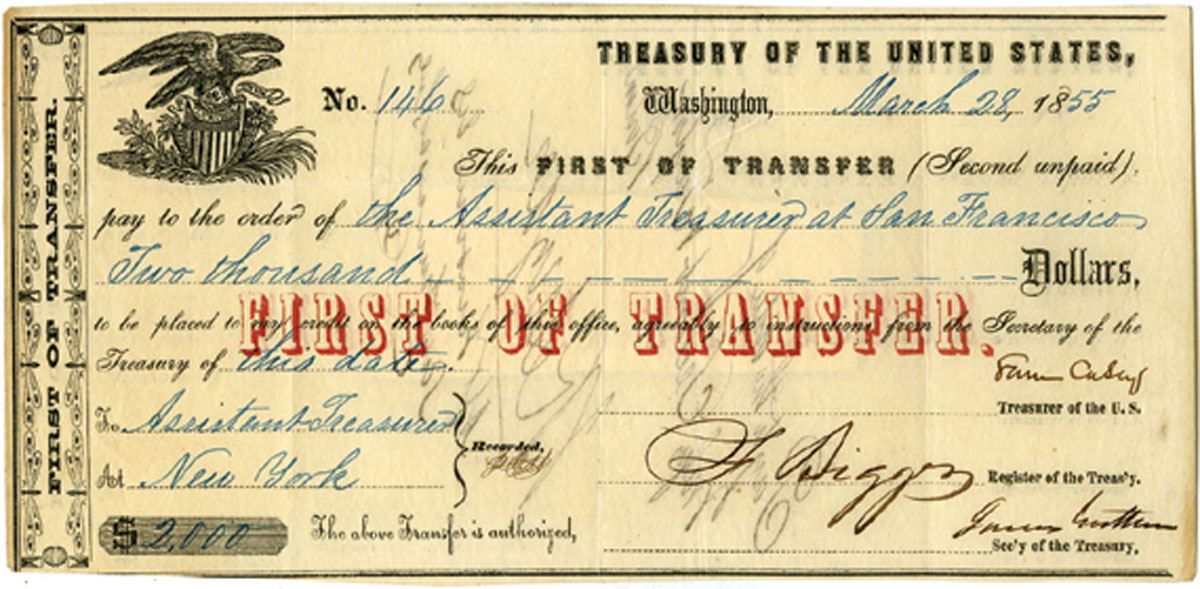 FIRST OF TRANSFER.
TREASURY OF THE UNITED STATES,
No. 146 Washington, March 28, 1855
This FIRST OF TRANSFER (Second unpaid).
pay to the order of the Assistant Treasurer at San Francisco
Two thousand Dollars,
FIRST OF TRANSFER.
to be placed to my credit on the books of this office, agreeably to instructions from the Secretary of the
Treasury of this date.
Sam Casey
Treasurer of the U. S.
To Assistant Treasurer
Recorded,
At New York
F Biggs
Register of the Treas'y.
$ 2,000
The above Transfer is authorized,
James Guthrie
Sec'y of the Treasury,